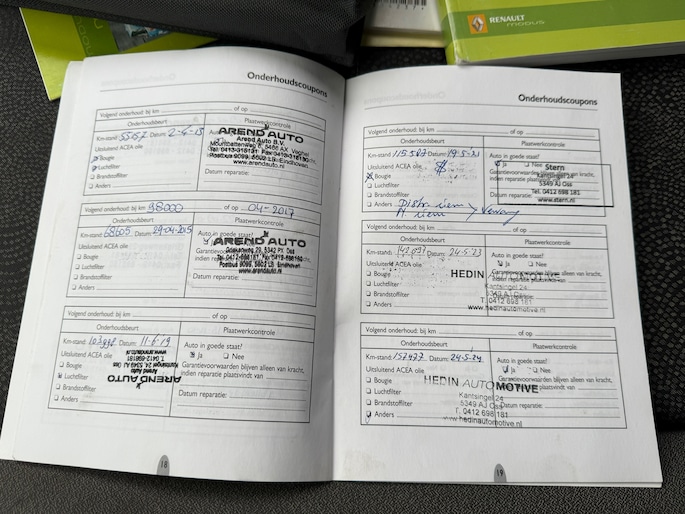 RENAULT
MODUS
Onderhoudscoupons
Volgend onderhoud: bij km of op
Onderhoudsbeurt Plaatwerkcontrole
Km-stand: Datum: 2-4-13
Uitsluitend ACEA olie
Bougie
Luchtfilter
Brandstoffilter
Anders
Datum reparatie:
AREND AUTO
Arend Auto B.V.
www.arendauto.nl
Volgend onderhoud: bij km 98000 of op 04-2017
Onderhoudsbeurt Plaatwerkcontrole
Km-stand: 68605 Datum: 29-04-2015
Uitsluitend ACEA olie
Bougie
Luchtfilter
Brandstoffilter
Anders
Datum reparatie:
AREND AUTO
www.arendauto.nl
Volgend onderhoud: bij km of op
Onderhoudsbeurt Plaatwerkcontrole
Km-stand: Datum: 11-6-19 Auto in goede staat?
Uitsluitend ACEA olie Ja Nee
Bougie Garantievoorwaarden blijven alleen van kracht,
Luchtfilter indien reparatie plaatsvindt van
Brandstoffilter Datum reparatie:
Anders
AREND AUTO
Arend Auto
Kantsingel 24, 5349 AJ Oss
T. 0412-698181
www.arendauto.nl
18
Onderhoudscoupons
Volgend onderhoud: bij km of op
Onderhoudsbeurt Plaatwerkcontrole
Km-stand: 115587 Datum: 19-5-21 Auto in goede staat?
Uitsluitend ACEA olie Ja Nee
Bougie Garantievoorwaarden blijven alleen van kracht,
Luchtfilter
Brandstoffilter Datum reparatie:
Anders Distr riem
riem
Stern
Kantsingel 24
5349 AJ Oss
Tel. 0412 698 181
www.stern.nl
Volgend onderhoud: bij km of op
Onderhoudsbeurt Plaatwerkcontrole
Km-stand: Datum: 24-5-23 Auto in goede staat?
Uitsluitend ACEA olie Ja Nee
Bougie Garantievoorwaarden blijven alleen van kracht,
Luchtfilter
Brandstoffilter
Anders
HEDIN AUTOMOTIVE
Kantsingel 24
5349 AJ Oss
T. 0412 698 181
www.hedinautomotive.nl
Volgend onderhoud: bij km of op
Onderhoudsbeurt Plaatwerkcontrole
Km-stand: 152477 Datum: 24-5-24 Auto in goede staat?
Uitsluitend ACEA olie Ja Nee
Bougie Garantievoorwaarden blijven alleen van kracht,
Luchtfilter indien reparatie plaatsvindt van
Brandstoffilter Datum reparatie:
Anders
HEDIN AUTOMOTIVE
Kantsingel 24
5349 AJ Oss
T. 0412 698 181
www.hedinautomotive.nl
19